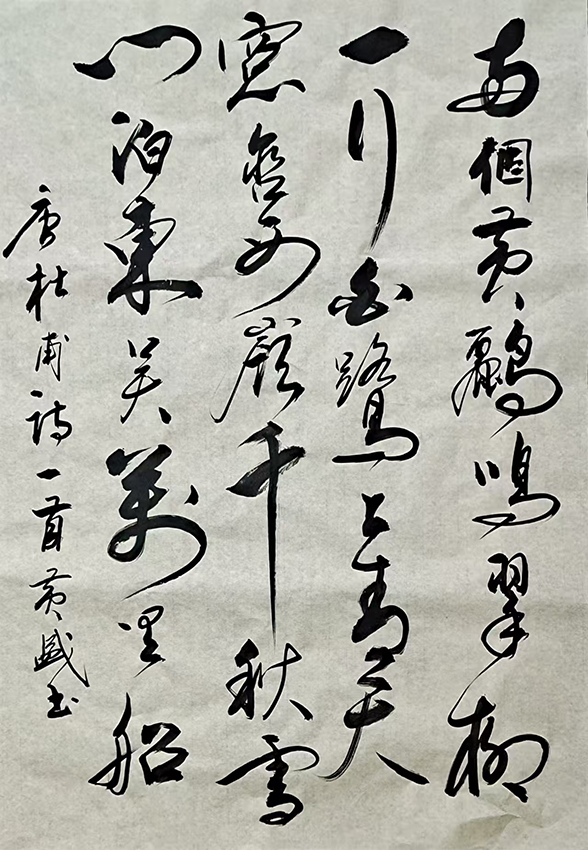 兩個黃鸝鳴翠柳
一行白鷺上青天
窓含西嶺千秋雪
門泊東吳萬里船
唐杜甫詩一首黃盛書